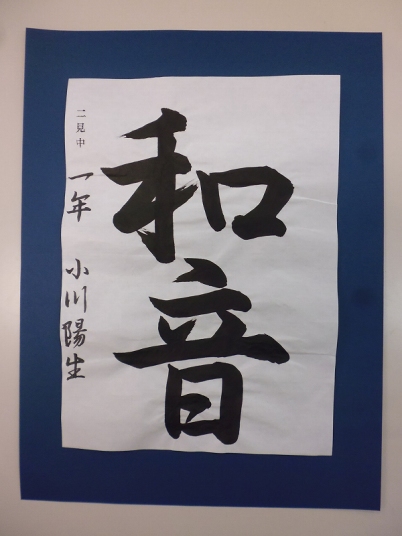 和音
二見中
一年 小川陽生